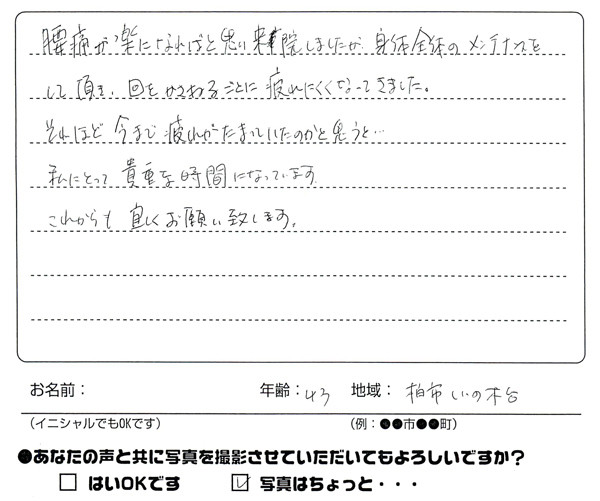 腰痛が楽になればと思い来院しましたが、身体全体のメンテナンスを
して頂き、回をかさねるごとに疲れにくくなってきました。
それほど今まで疲れがたまっていたのかと思うと…
私にとって貴重な時間になっています
これからも宜しくお願い致します。
お名前：
年齢：43 地域：柏市いの木台
（イニシャルでもOKです）
（例：●●市●●町）
●あなたの声と共に写真を撮影させていただいてもよろしいですか？
□ はいOKです ☑ 写真はちょっと・・・